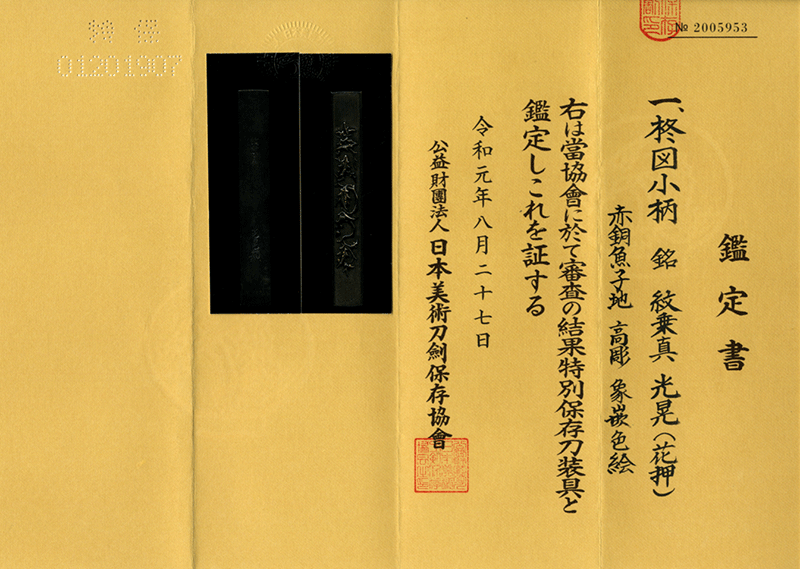 № 2005953
鑑定書
一、柊図小柄 銘 紋乗真 光晃(花押)
赤銅魚子地 高彫 象嵌色絵
右は當協會に於て審査の結果特別保存刀装具と
鑑定しこれを証する
令和元年八月二十七日
公益財團法人 日本美術刀劍保存協會
特保
01201907